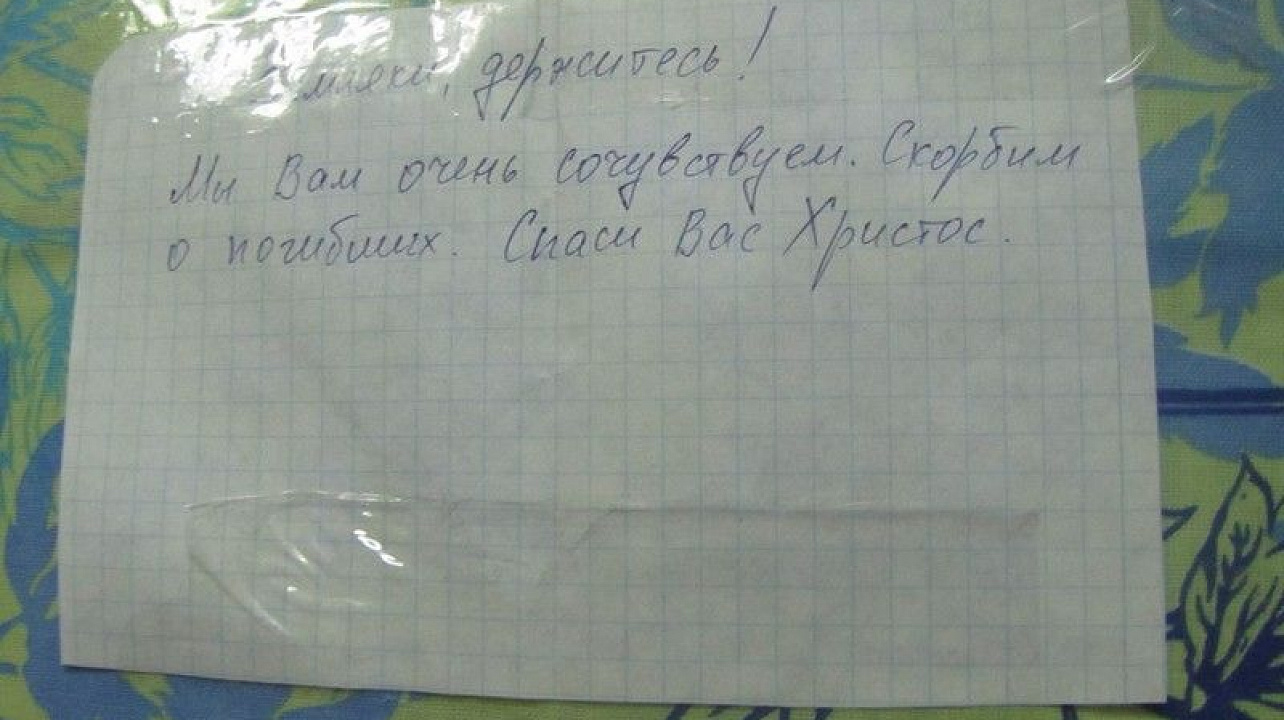 Земляки, держитесь!
Мы Вам очень сочувствуем. Скорбим
о погибших. Спаси Вас Христос.